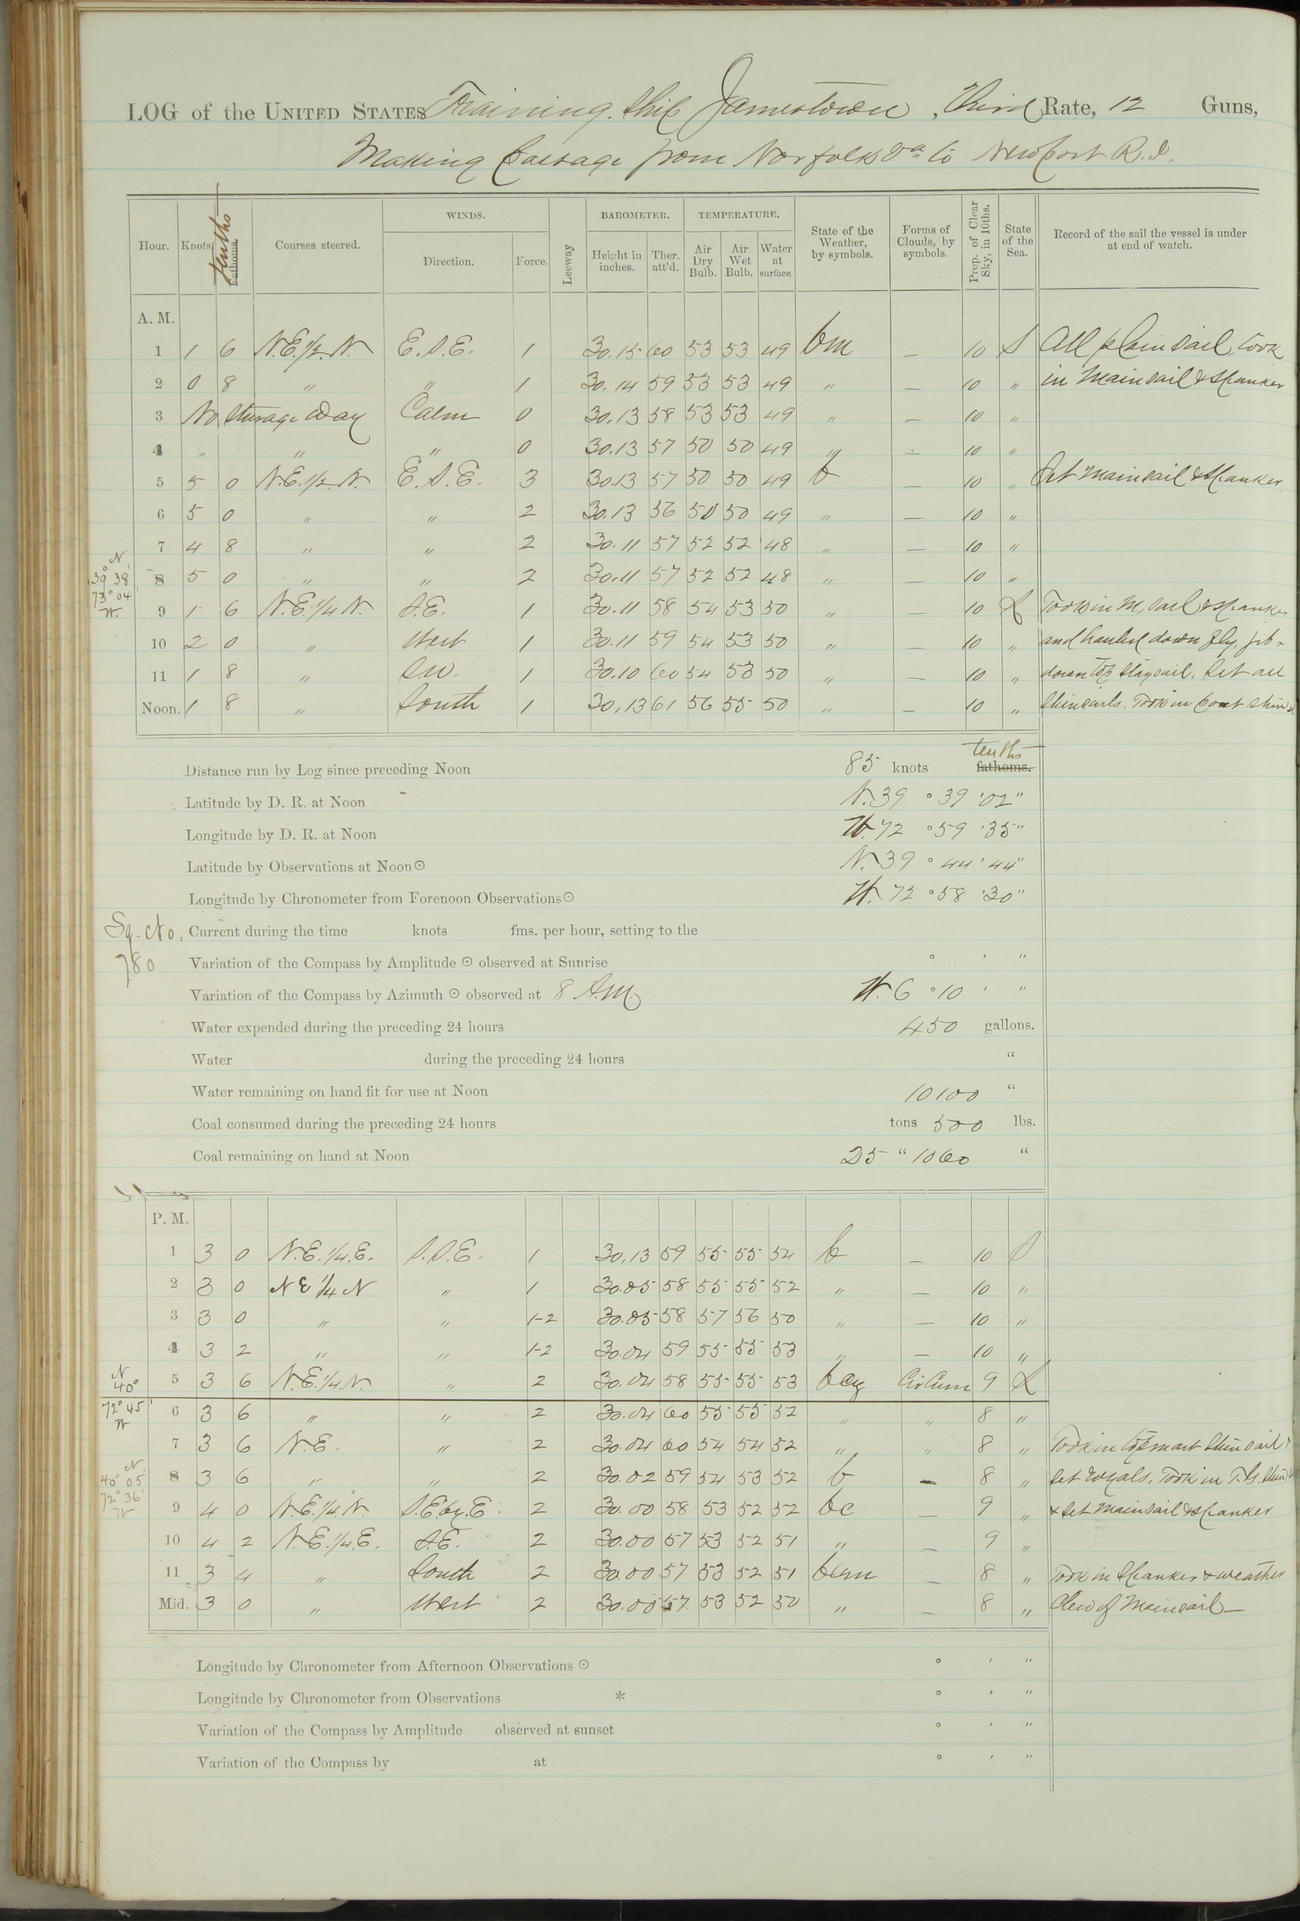 LOG of the UNITED STATES Training Ship Jamestown, Third Rate, 12 Guns,
Making passage from Norfolk Va to Newport R.I.
Hour. Knots. tenths Fathoms. Courses steered. WINDS. Direction. Force. Leeway BAROMETER. Height in inches. Ther. att'd. TEMPERATURE. Air Dry Bulb. Air Wet Bulb. Water at surface. State of the Weather, by symbols. Forms of Clouds, by symbols. Prop. of Clear Sky, in 10ths. State of the Sea. Record of the sail the vessel is under at end of watch.
A. M.
1 1 6 N.E.1/2.N. E.S.E. 1 30.15 60 53 53 49 bm — 10 S All plain sail, took
2 0 8 " " 1 30.14 59 53 53 49 " — 10 " in Mainsail & Spanker
3 No Sterage Way Calm 0 30.13 58 53 53 49 " — 10 "
4 " " " 0 30.13 57 50 50 49 " — 10 "
5 5 0 N.E.1/2.N. E.S.E. 3 30.13 57 50 50 49 b — 10 " Set Mainsail & Spanker
6 5 0 " " 2 30.13 56 50 50 49 " — 10 "
7 4 8 " " 2 30.11 57 52 52 48 " — 10 "
N
39° 38'
73° 04'
W.
8 5 0 " " 2 30.11 57 52 52 48 " — 10 "
9 1 6 N.E.1/4 N. S.E. 1 30.11 58 54 53 50 " — 10 L Took in M. Sail & Spanker
10 2 0 " West 1 30.11 59 54 53 50 " — 10 " and hauled down fly. jib
11 1 8 " SW. 1 30.10 60 54 53 50 " — 10 " down Staysail. Set all
Noon. 1 8 " South 1 30.13 61 56 55 50 " — 10 " Stunsails. Took in
Distance run by Log since preceding Noon 85 knots tenths fathoms.
Latitude by D. R. at Noon N. 39 ° 39 ' 02 "
Longitude by D. R. at Noon W. 72 ° 59 ' 35 "
Latitude by Observations at Noon ☉ N. 39 ° 44 ' 44 "
Longitude by Chronometer from Forenoon Observations ☉ W. 72 ° 58 ' 30 "
Sq. No. 780
Current during the time knots fms. per hour, setting to the
Variation of the Compass by Amplitude ☉ observed at Sunrise ° ' "
Variation of the Compass by Azimuth ☉ observed at 8 A.M. W. 6 ° 10 ' "
Water expended during the preceding 24 hours 450 gallons.
Water during the preceding 24 hours "
Water remaining on hand fit for use at Noon 10100 "
Coal consumed during the preceding 24 hours tons 500 lbs.
Coal remaining on hand at Noon 25 " 1060 "
P. M.
1 3 0 N.E.1/4.E. S.S.E. 1 30.13 59 55 55 54 b — 10 S
2 3 0 NE 1/4 N " 1 30.05 58 55 55 52 " — 10 "
3 3 0 " " 1-2 30.05 58 57 56 50 " — 10 "
4 3 2 " " 1-2 30.04 59 55 55 53 " — 10 "
N
40°
5 3 6 N.E.1/4.N. " 2 30.04 58 55 55 53 Cir Cum 9 L
72° 45'
W
6 3 6 " " 2 30.04 60 55 55 52 " " 8 "
7 3 6 N.E. " 2 30.04 60 54 54 52 " " 8 " Took in Topmast Stunsail &
N.
40° 05'
72° 36'
W
8 3 6 " " 2 30.02 59 54 53 52 b — 8 " Set royals. Took in
9 4 0 N.E.1/4.N. S.E.by.E. 2 30.00 58 53 52 52 bc — 9 " & set Mainsail & Spanker
10 4 2 N.E.1/4.E. S.E. 2 30.00 57 53 52 51 " — 9 "
11 3 4 " South 2 30.00 57 53 52 51 bcm — 8 " Took in Spanker & weather
Mid. 3 0 " West 2 30.00 57 53 52 50 " — 8 " Clew of Mainsail —
Longitude by Chronometer from Afternoon Observations ☉ ° ' "
Longitude by Chronometer from Observations * ° ' "
Variation of the Compass by Amplitude observed at sunset ° ' "
Variation of the Compass by at ° ' "